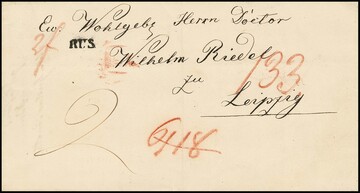 Ew: Wohlgeb: Herrn Doctor
RUS.
Wilhelm Riedel
zu
Leipzig
133
2